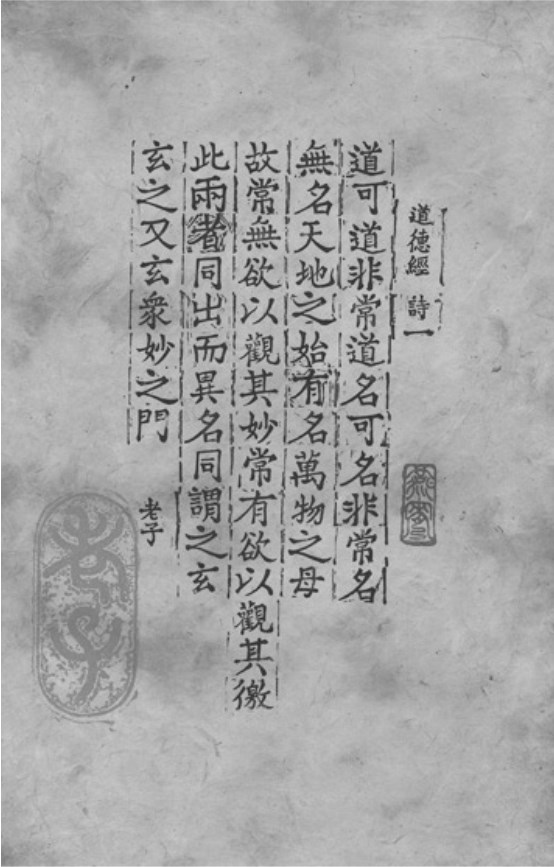 道德經 詩一
道可道非常道名可名非常名
無名天地之始有名萬物之母
故常無欲以觀其妙常有欲以觀其徼
此兩者同出而異名同謂之玄
玄之又玄衆妙之門
老子
老子